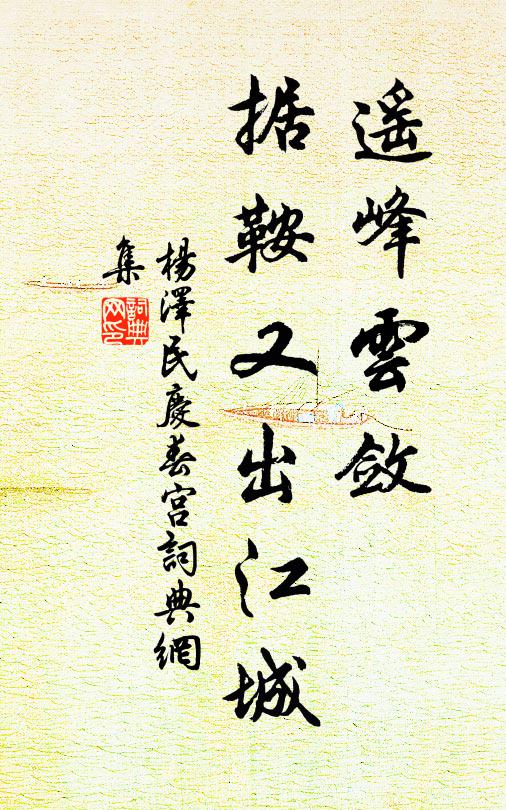 遥峰雲斂
据鞍又出江城
楊澤民慶春宮詞典網
集
詞典
网印